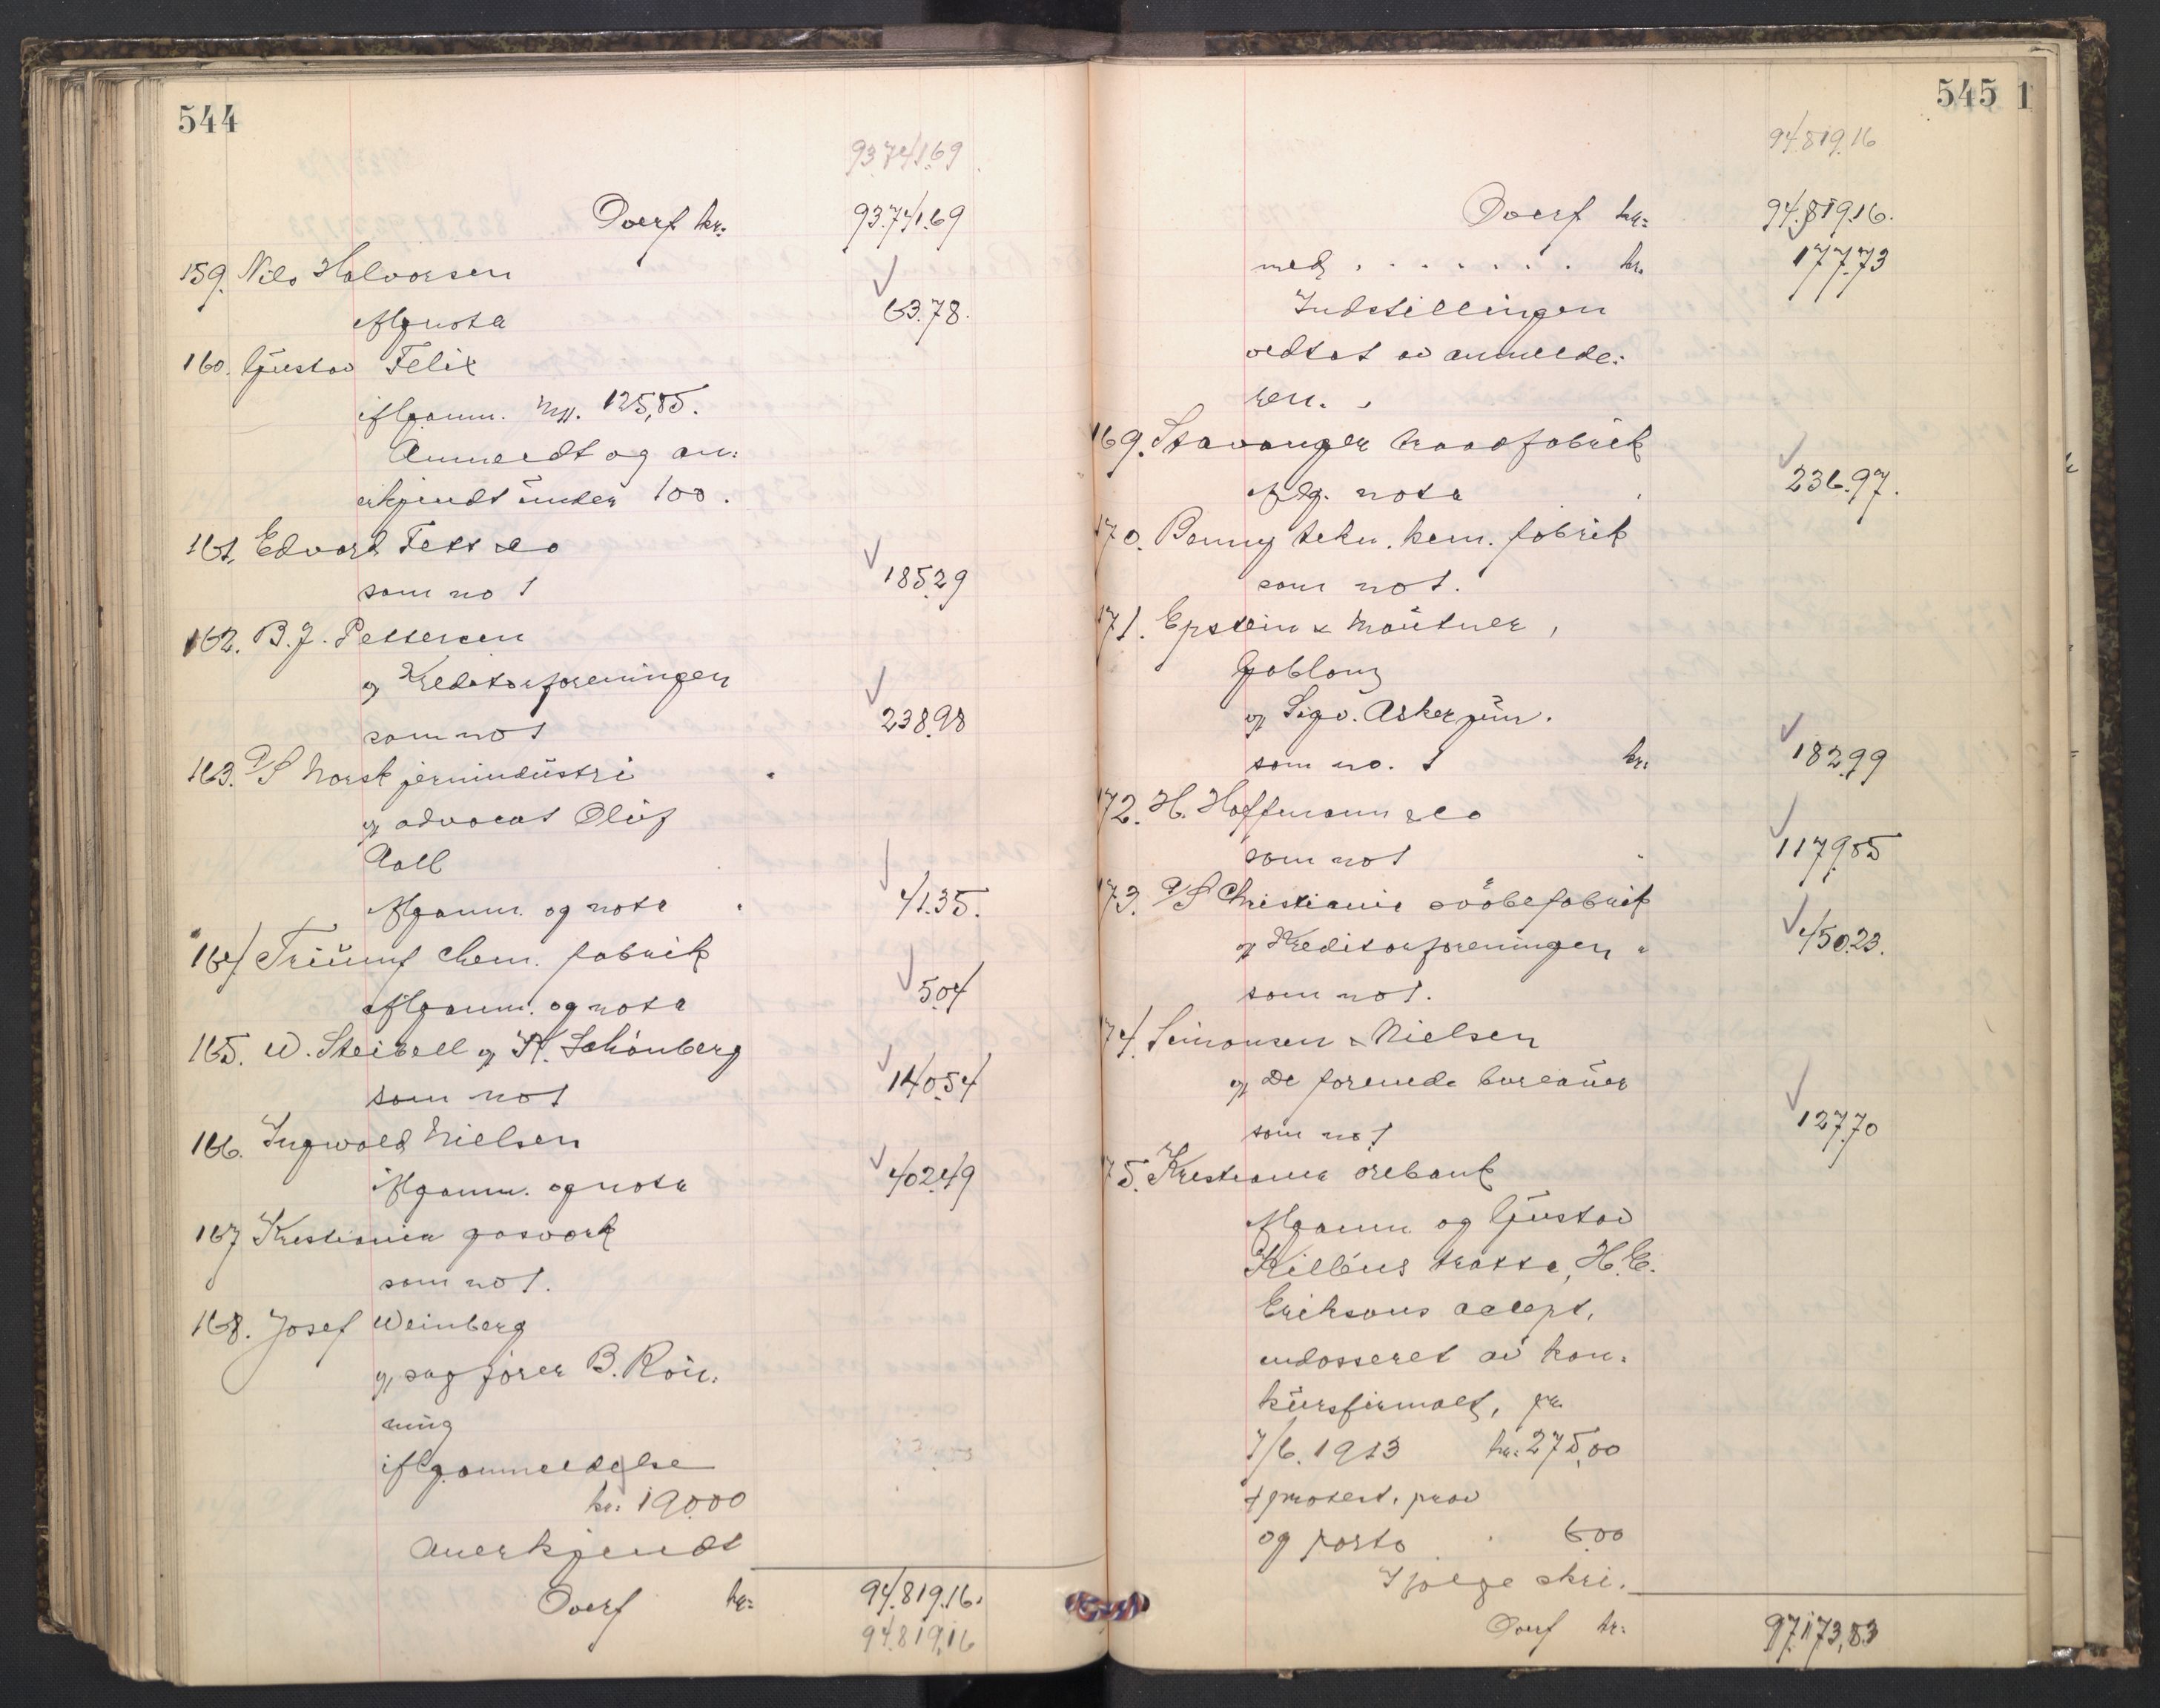 544
93.741.69
Overf kr. 93.741.69
159. Nils Halvorsen
iflg nota 63.78.
160. Gustav Felix
iflg anm. 125,85.
Anmeldt og an-
erkjendt under 100.
161. Edvard Fett & Co
som no 1 185.29
162. B. J. Pettersen
v/ Kreditorforeningen
som no 1 238.98
163. A/S Norsk jernindustri
v/ advocat Oluf
Aall
iflg anm. og nota 41.35.
164 Triumf chem. fabrik
iflg anm. og nota 5.04
165. W. Steibell v/ K. Schönberg
som no 1 140.54
166. Ingwald Nielsen
iflg anm. og nota 402.49
167 Kristiania gasverk
som no 1.
168. Josef Weinberg
v/ sagfører B. Røn-
ning
iflg anmeldelse
kr. 190.00
Anerkjendt
Overf kr: 94.819.16.
94.819.16
545 1
94.819.16
Overf kr: 94.819.16.
med . . . . . . . kr. 177.73
Indstillingen
vedtat av anmelde-
ren.
169. Stavanger traadfabrik
iflg. nota 236.97.
170. Benny tekn. kem. fabrik
som no 1.
171. Epstein & Mautner,
Gablonz
v/ Sigv. Asker jun.
som no. 1 kr. 182.99
172. H. Hoffmann & Co
som no 1 1179.85
173. A/S Christiania svøbefabrik
v/ Kreditorforeningen " 450.23.
som no 1.
74. Simonsen & Nielsen
v/ De forenede bureauer
som no 1 127.70
75. Kristiania
iflg anm. og Gustav
tratte, H. E.
Eriksons accept,
endosseret av kon-
kursfirmaet, pr.
7/6. 1913 kr: 275,00
+ protest, prov
og porto " 6.00
Ifølge skri-
Overf kr: 97.173,83